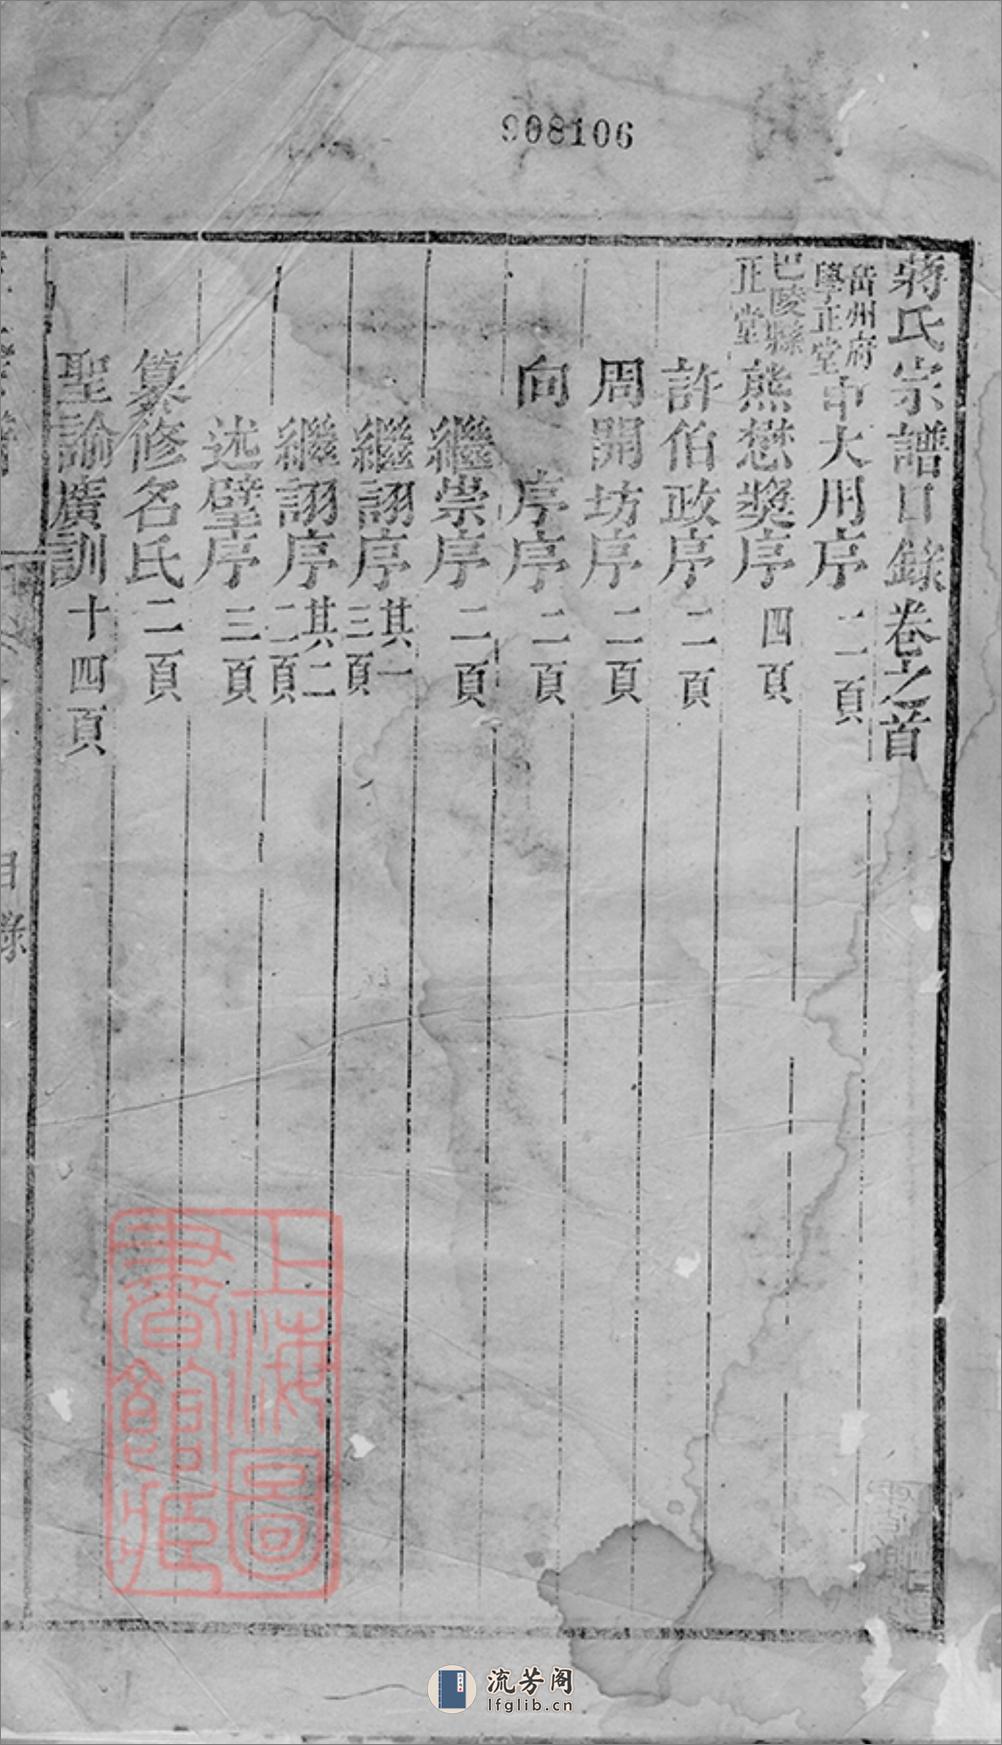 908106
蔣氏宗譜目錄卷之首
岳州府學正堂申大用序二頁
巴陵縣正堂熊懋奬序四頁
許伯政序二頁
周開坊序二頁
向序序二頁
繼崇序二頁
繼詡序其一三頁
繼詡序其二二頁
述壁序三頁
纂修名氏二頁
聖諭廣訓十四頁
目錄
上海圖書館藏
流芳阁
lfglib.cn